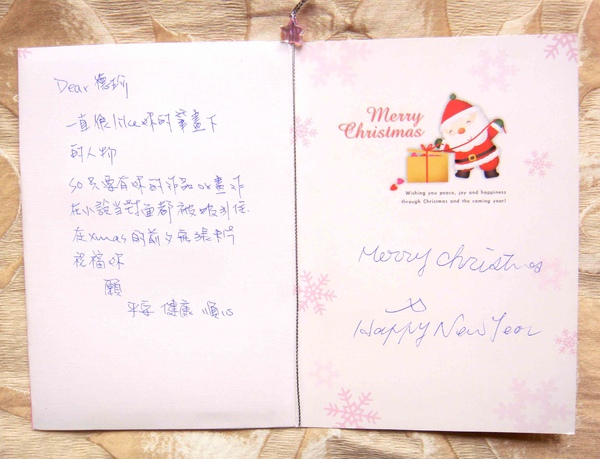 Dear 德珍
一直很like妳的筆畫下
的人物
so只要有妳的作品or畫作
在小說当封面都被吸引住
在xmas的前夕飛張卡片
祝福妳
願
平安 健康 順心
Merry
Christmas
Wishing you peace, joy and happiness
through Christmas and the coming year!
Merry Christmas
Happy New Year